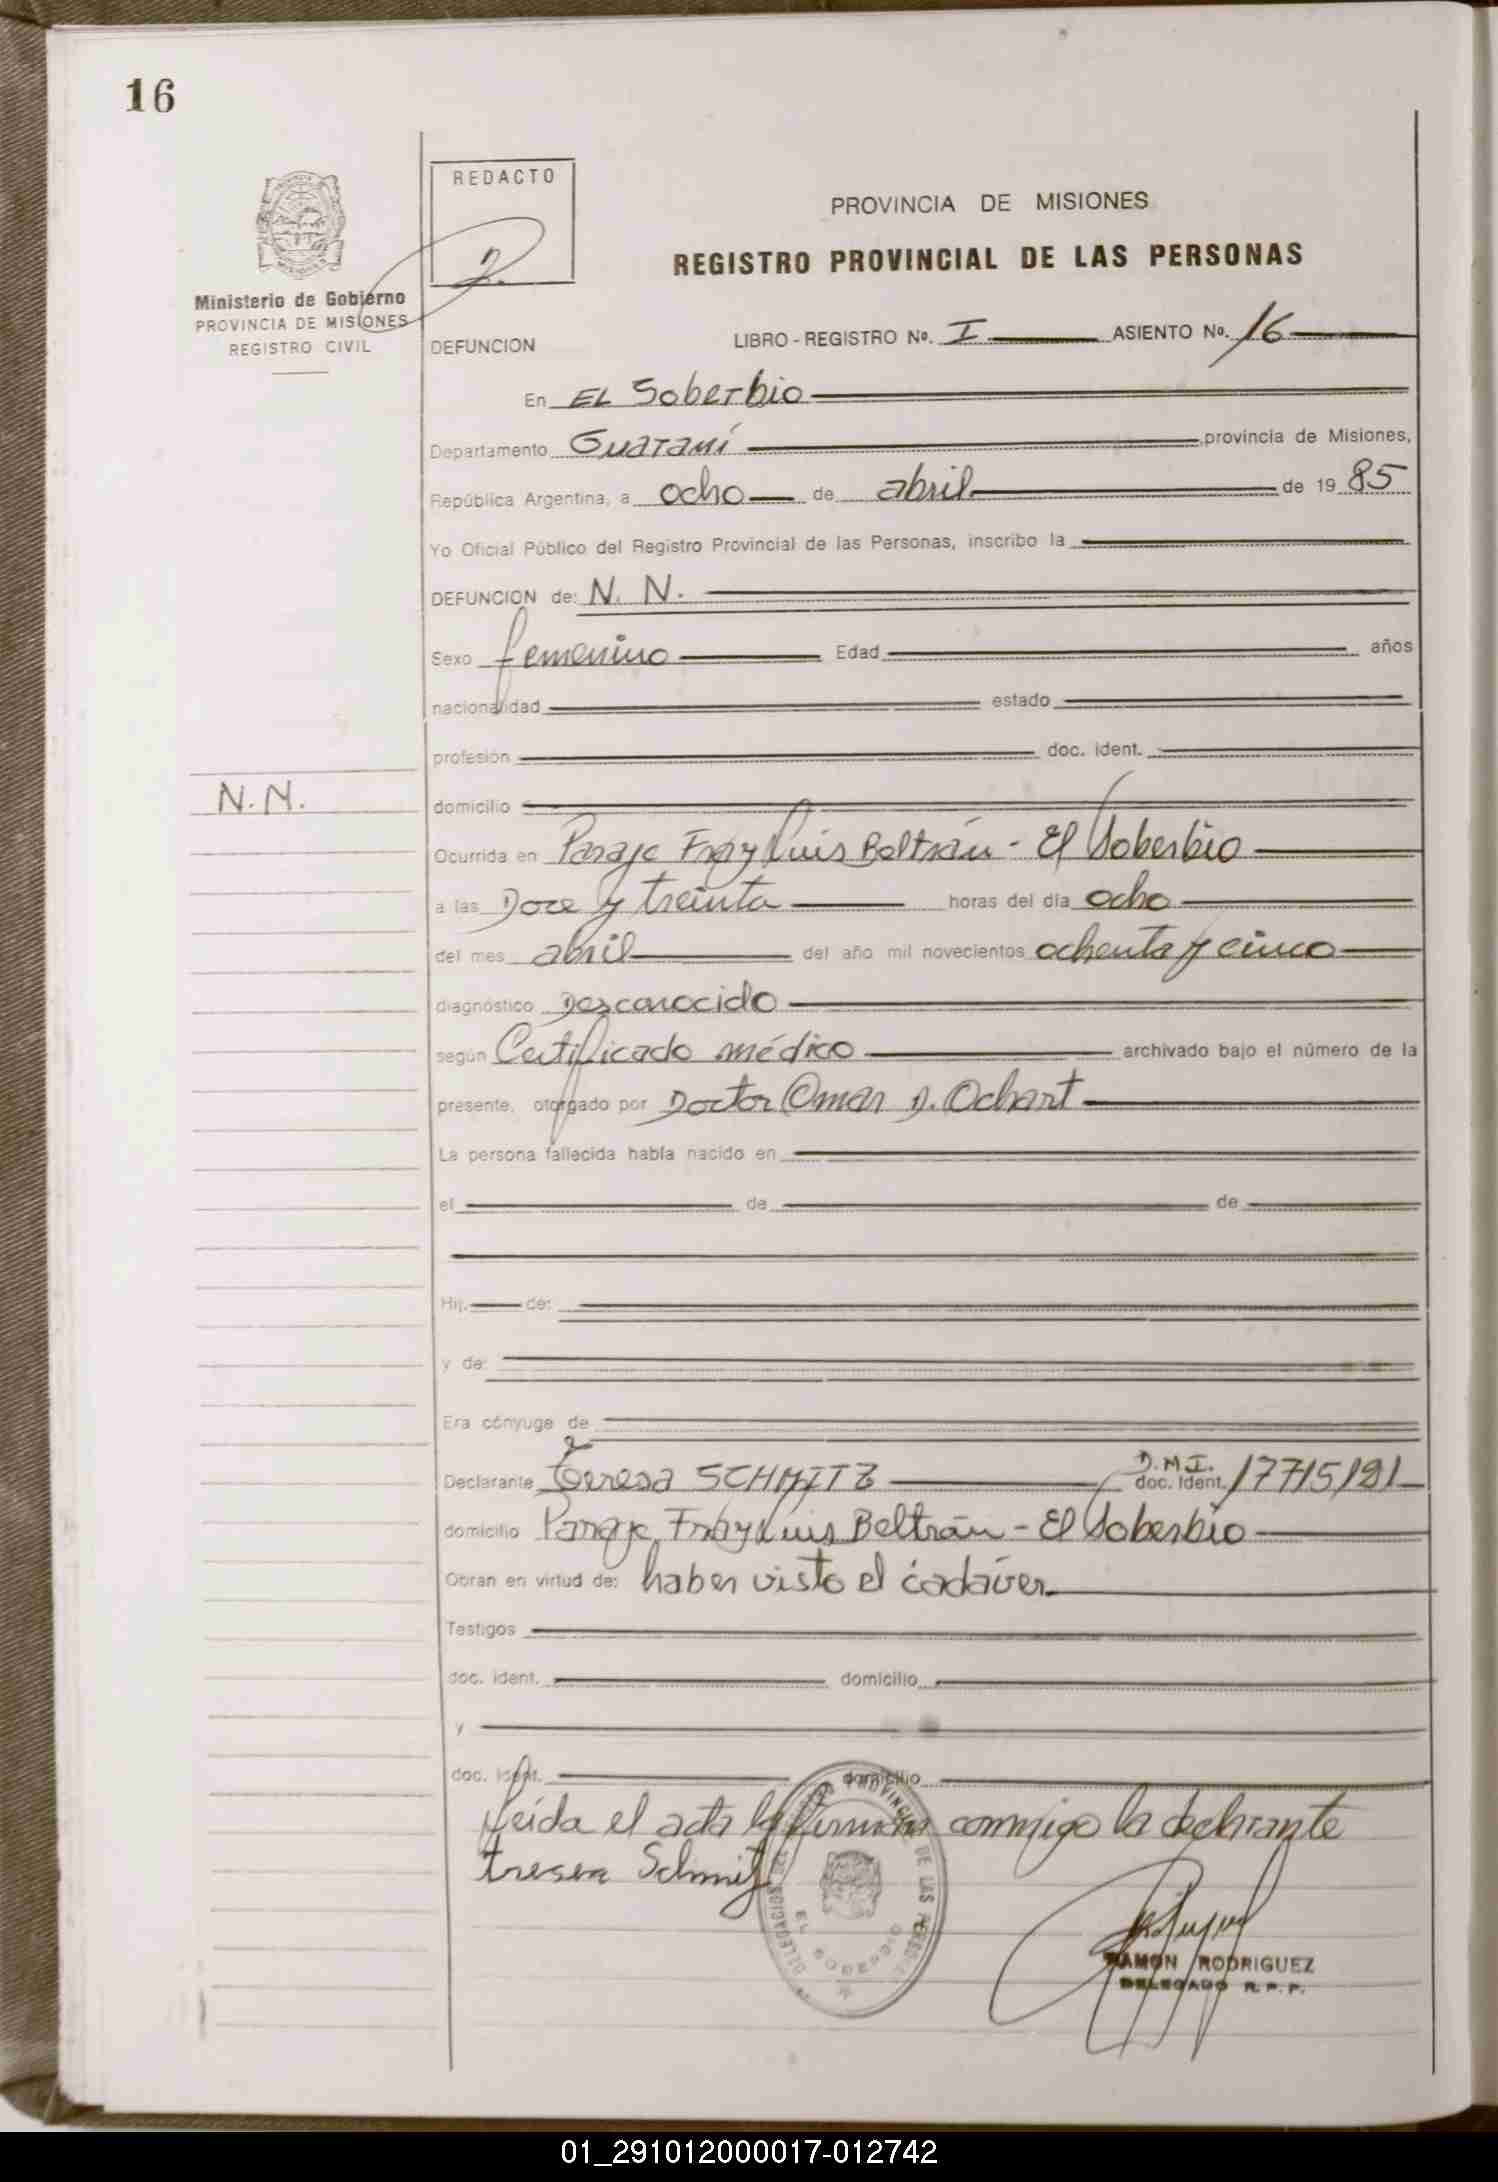 16
REDACTO
Ministerio de Gobierno
PROVINCIA DE MISIONES
REGISTRO CIVIL
PROVINCIA DE MISIONES
REGISTRO PROVINCIAL DE LAS PERSONAS
DEFUNCION LIBRO - REGISTRO Nº. I ASIENTO Nº. 16
En EL Soberbio
Departamento Guaraní provincia de Misiones,
República Argentina, a ocho de abril de 1985
Yo Oficial Público del Registro Provincial de las Personas, inscribo la
DEFUNCION de: N. N.
Sexo femenino Edad años
nacionalidad estado
profesión doc. ident.
N.N.
domicilio
Ocurrida en Paraje Fray Luis Beltrán - El Soberbio
a las Doce y treinta horas del día ocho
del mes abril del año mil novecientos ochenta y cinco
diagnóstico Desconocido
según Certificado médico archivado bajo el número de la
presente, otorgado por Doctor Omar D. Ochart
La persona fallecida había nacido en
el de de
Hij. de:
y de:
Era cónyuge de
Declarante Teresa SCHMITZ D.M.I. doc. ident.
domicilio Paraje Fray Luis Beltrán - El Soberbio
Obran en virtud de: haber visto el cadáver
Testigos
doc. ident. domicilio
y
doc. ident. domicilio
Leída el acta la firma conmigo la declarante
tresera Schmitz
DELEGACION REGISTRO PROVINCIAL DE LAS PERSONAS
EL SOBERBIO
RAMON RODRIGUEZ
DELEGADO R.P.P.
01_291012000017-012742